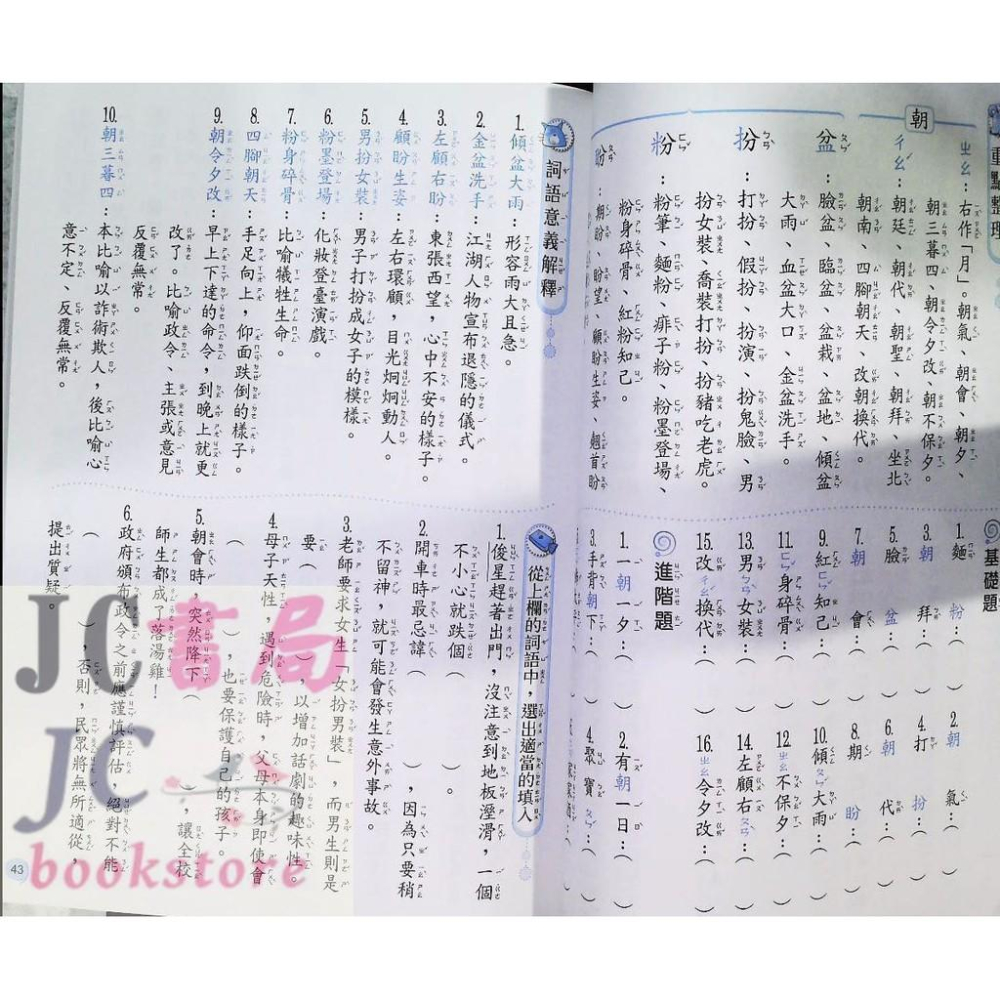 重點整理
朝
ㄓㄠ：右作「月」。朝氣、朝會、朝夕、
朝三暮四、朝令夕改、朝不保夕。
ㄔㄠˊ：朝廷、朝代、朝聖、朝拜、坐北
朝南、四腳朝天、改朝換代。
盆：臉盆、臨盆、盆栽、盆地、傾盆
大雨、血盆大口、金盆洗手。
扮：打扮、假扮、扮演、扮鬼臉、男
扮女裝、喬裝打扮、扮豬吃老虎。
粉：粉筆、麵粉、痱子粉、粉墨登場、
粉身碎骨、紅粉知己。
盼：期盼、盼望、顧盼生姿、翹首盼
基礎題
1. 麵粉：（　）
2. 朝氣：（　）
3. 朝拜：（　）
4. 打扮：（　）
5. 臉盆：（　）
6. 朝代：（　）
7. 朝會：（　）
8. 期盼：（　）
9. 紅ㄈㄣˇ知己：（　）
10. 傾ㄆㄣˊ大雨：（　）
11. ㄈㄣˇ身碎骨：（　）
12. ㄓㄠ不保夕：（　）
13. 男ㄅㄢˋ女裝：（　）
14. 左顧右ㄆㄢˋ：（　）
15. 改ㄔㄠˊ換代：（　）
16. ㄓㄠ令夕改：（　）
進階題
1. 一朝一夕：（　）
2. 有朝一日：（　）
3. 手背朝下：（　）
4. 聚寶ㄆㄣˊ：（　）
詞語意義解釋
1. 傾盆大雨：形容雨大且急。
2. 金盆洗手：江湖人物宣布退隱的儀式。
3. 左顧右盼：東張西望，心中不安的樣子。
4. 顧盼生姿：左右環顧，目光炯炯動人。
5. 男扮女裝：男子打扮成女子的模樣。
6. 粉墨登場：化妝登臺演戲。
7. 粉身碎骨：比喻犧牲生命。
8. 四腳朝天：手足向上，仰面跌倒的樣子。
9. 朝令夕改：早上下達的命令，到晚上就更
改了。比喻政令、主張或意見
反覆無常。
10. 朝三暮四：本比喻以詐術欺人，後比喻心
意不定、反覆無常。
從上欄的詞語中，選出適當的填入
1. 俊星趕著出門，沒注意到地板溼滑，一個
不小心就跌個（　）。
2. 開車時最忌諱（　），因為只要稍
不留神，就可能會發生意外事故。
3. 老師要求女生「女扮男裝」，而男生則是
要（　），以增加話劇的趣味性。
4. 母子天性，遇到危險時，父母本身即使會
（　），也要保護自己的孩子。
5. 朝會時，突然降下（　），讓全校
師生都成了落湯雞！
6. 政府頒布政令之前應謹慎評估，絕對不能
（　），否則，民眾將無所適從，
提出質疑。
43
JC書局
JC
bookstore